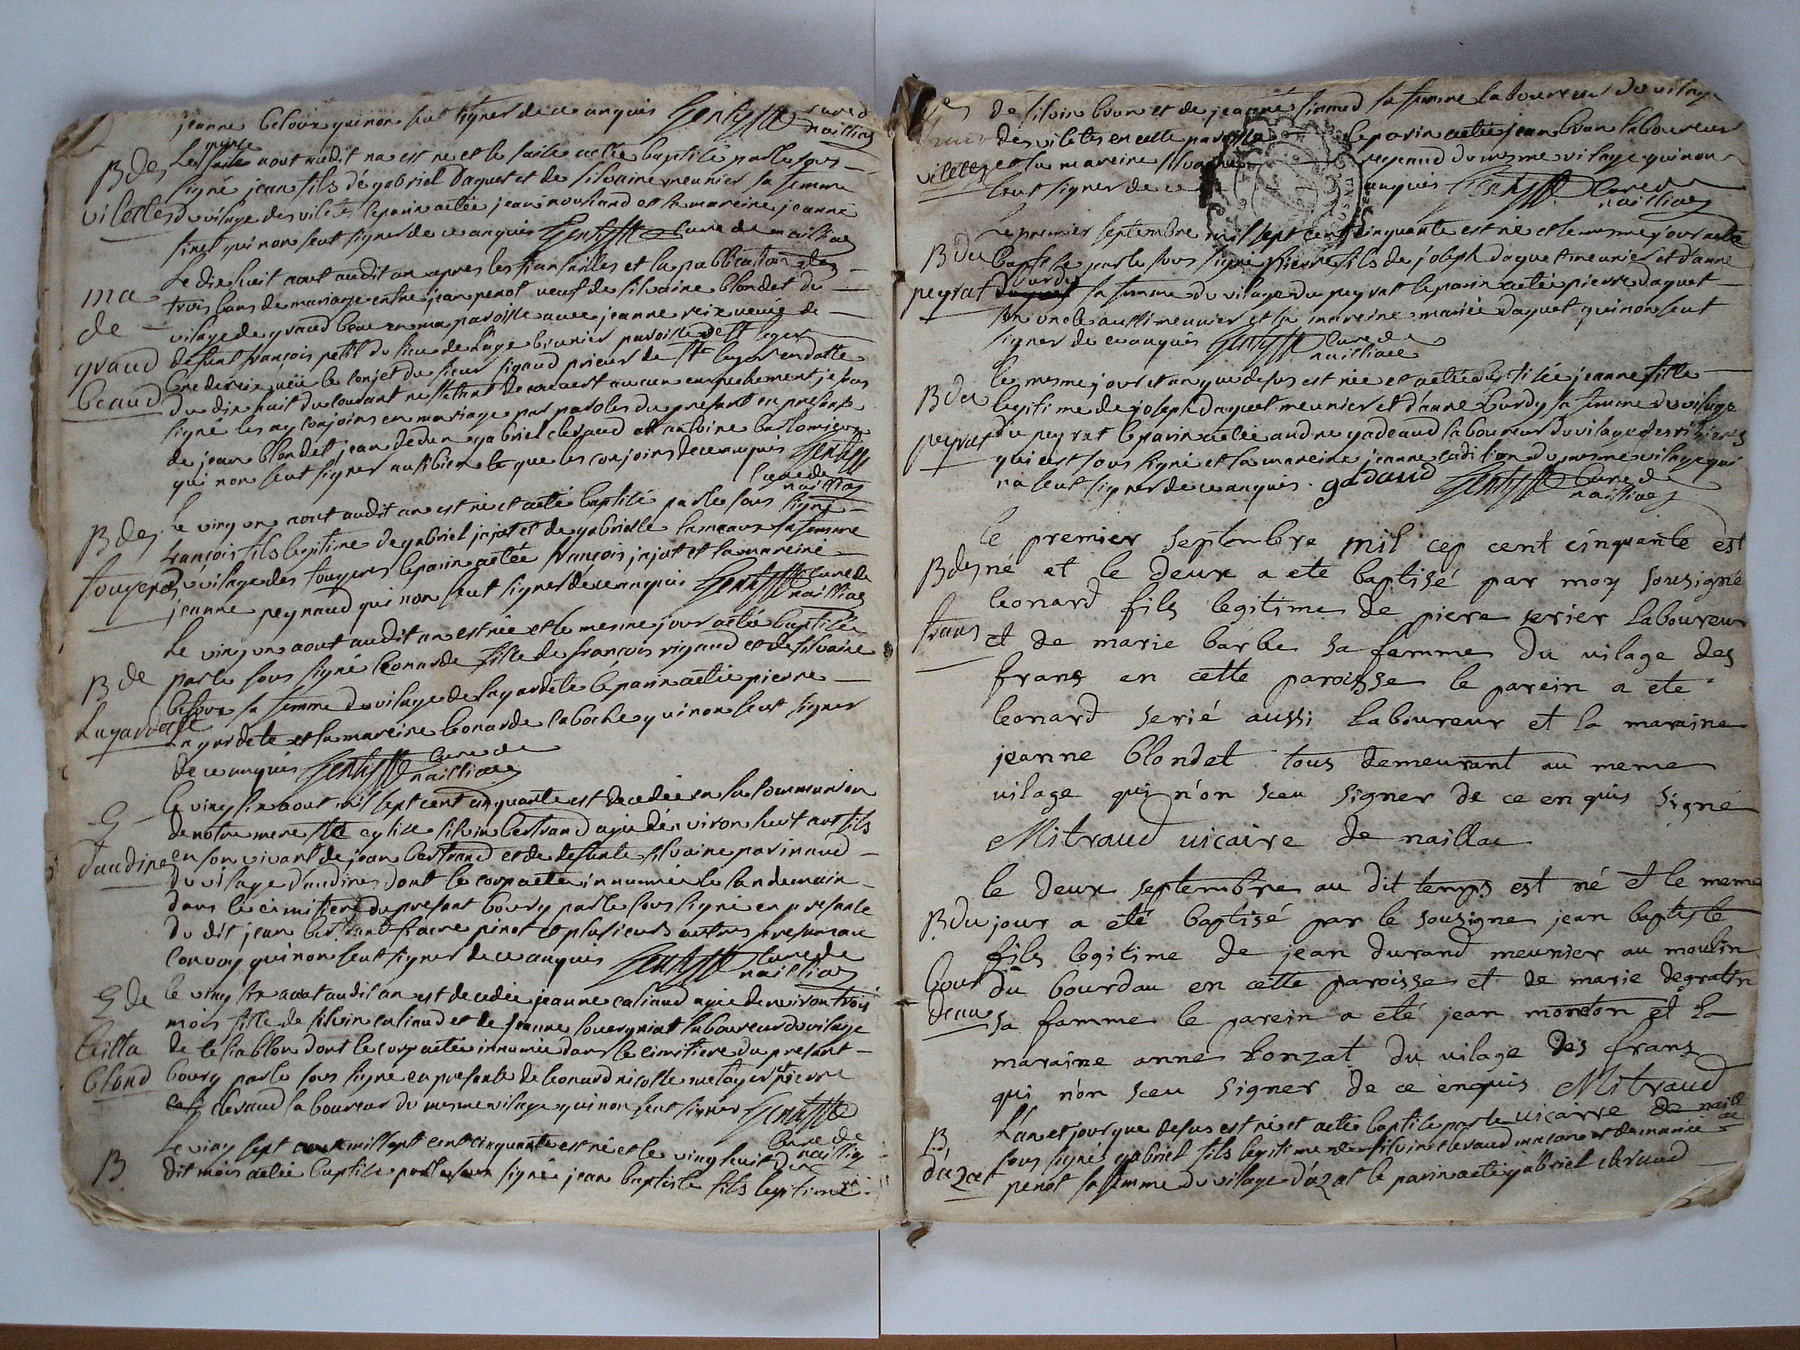 jeanne beloux qui non seut signer de ce anquis Gentysse curé d
naillac
B des
viletes
aout audit an est né et le a esté baptisé par le sous
signé jean fils de gabriel daquet et de silvaine meunier sa femme
du vilage des viletes le parin a esté jean et la mareine jeanne
qui non seut signer de ce anquis Gentysse curé de naillac
ma
de
graud
beaud
Le dix huit aout audit an apres les fiansailles et la publication des
trois bans de mariage entre jean penot veuf de silvaine blondet du
vilage de graud beau en ma paroisse avec jeanne veuve de
defunt françois petit du lieu de lage paroisse de st leger
le conjet du sieur sigaud prieur de st leger en datte
du dix huit du courant ne s'etant decouvert aucun enpechement je sous
signé les ay conjoins en mariage par paroles du present en presence
de jean blondet jean dedun gabriel clevaud et antoine
qui non seut signer aussi bien que les conjoins de ce anquis Gentysse
curé de
naillac
B des
fougeres
Le vingt un aout audit an est né et a esté baptisé par le sous signé
françois fils legitime de gabriel jajot et de gabrielle sa femme
du vilage des fougeres le parin a esté françois jajot et la mareine
jeanne peynaud qui non seut signer de ce anquis Gentysse curé de
naillac
B de
lagardette
Le vingt un aout audit an est née et le mesme jour a esté baptisée
par le sous signé leonarde fille de françois rigaud et de silvaine
beloux sa femme du vilage de lagardete le parin a esté pierre
lagardete et la mareine leonarde laboche qui non seut signer
de ce anquis Gentysse curé de
naillac
E
daudine
Le vingt six aout mil sept cent cinquante est decedée en la communion
de notre mere ste eglise silvin bertrand agé d'environ huit ans fils
en son vivant de jean bertrand et de defunte silvaine parinaud
du vilage d'audines dont le corp a esté innumée le landemain
dans le cimitiere du presant bourg par le sous signé en presance
du dit jean bertrand penot et plusieurs autres presens au
convoy qui non seut signer de ce anquis Gentysse curé de
naillac
E de
teilla
blond
Le vingt six aout audit an est decedée jeanne caliaud agée d'environ trois
mois fille de silvin caliaud et de jeanne laboureur du vilage
de teliablon dont le corp a esté innumée dans le cimitiere du presant
bourg par le sous signé en presante de leonard nicolle metayer et pierre
clevaud laboureur du mesme vilage qui non seut signer Gentysse
curé de
naillac
B
Le vingt sept aout mil sept cent cinquante est né et le vingt huit du
dit mois a esté baptisé par le sous signé jean baptiste fils legitime
viletes
de silvin brun et de jeanne sa femme laboureur du vilage
des viletes en cette paroisse le parin a esté jean brun laboureur
et la mareine peynaud du mesme vilage qui non
seut signer de ce anquis Gentysse curé de
naillac
B du
peyrat
Le premier septembre mil sept cent cinquante est né et le mesme jour a esté
baptisé par le sous signé pierre fils de joseph daquet meunier et d'anne
burdy
daquet sa femme du vilage du peyrat le parin a esté pierre daquet
son oncle aussi meunier et la mareine mariée daquet qui non seut
signer de ce anquis Gentysse curé de
naillac
B du
peyrat
Le mesme jour et an que desus est née et a esté baptisée jeanne fille
legitime de joseph daquet meunier et d'anne burdy sa femme du vilage
du peyrat le parin a esté andre gadeaud laboureur du vilage des
qui est sous signé et la mareine jeanne du mesme vilage qui
na seut signer de ce anquis. gadaud Gentysse curé de
naillac
B des
frans
le premier septembre mil cep cent cinquante est
né et le deux a eté baptisé par moy sousigné
leonard fils legitime de piere serier laboureur
et de marie barbe sa famme du vilage des
frans en cette paroisse le parein a ete
leonard serié aussi laboureur et la maraine
jeanne blondet tous demeurant au meme
vilage qui n'on sceu signer de ce enquis signé
Mitraud vicaire de naillac
B du
bour
deau
le deux septembre au dit temps est né et le meme
jour a eté baptisé par le sousigne jean baptiste
fils legitime de jean durand meunier au moulin
du bourdau en cette paroisse et de marie degratin
sa famme le parein a eté jean monton et la
maraine anne lonzat du vilage des frans
qui n'on sceu signer de ce enquis Mitraud
vicaire de naill
ac
B
dazat
L'an et jour que desus est né et a esté baptisé par le
sous signé gabriel fils legitime de silvin clevaud masson et de marie
penot sa femme du vilage d'azat le parin a esté gabriel clevaud